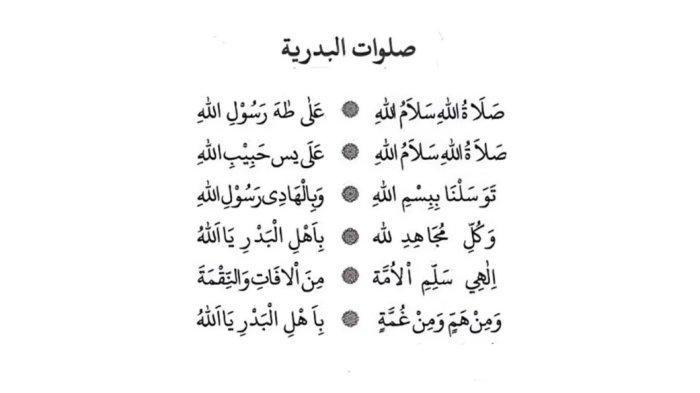 صلوات البدرية
صَلَاةُ اللهِ سَلَامُ اللهِ ۞ عَلَى طٰهَ رَسُوْلِ اللهِ
صَلَاةُ اللهِ سَلَامُ اللهِ ۞ عَلَى يٰس حَبِيْبِ اللهِ
تَوَسَلْنَا بِبِسْمِ اللهِ ۞ وَبِالْهَادِى رَسُوْلِ اللهِ
وَكُلِّ مُجَاهِدِ لله ۞ بِاَهْلِ الْبَدْرِ يَا اَللهُ
اِلٰهِي سَلِّمِ الْاُمَّة ۞ مِنَ الْافَاتِ وَالنِّقْمَةَ
وَمِنْ هَمٍّ وَمِنْ غُمَّةٍ ۞ بِاَهْلِ الْبَدْرِ يَا اَللهُ